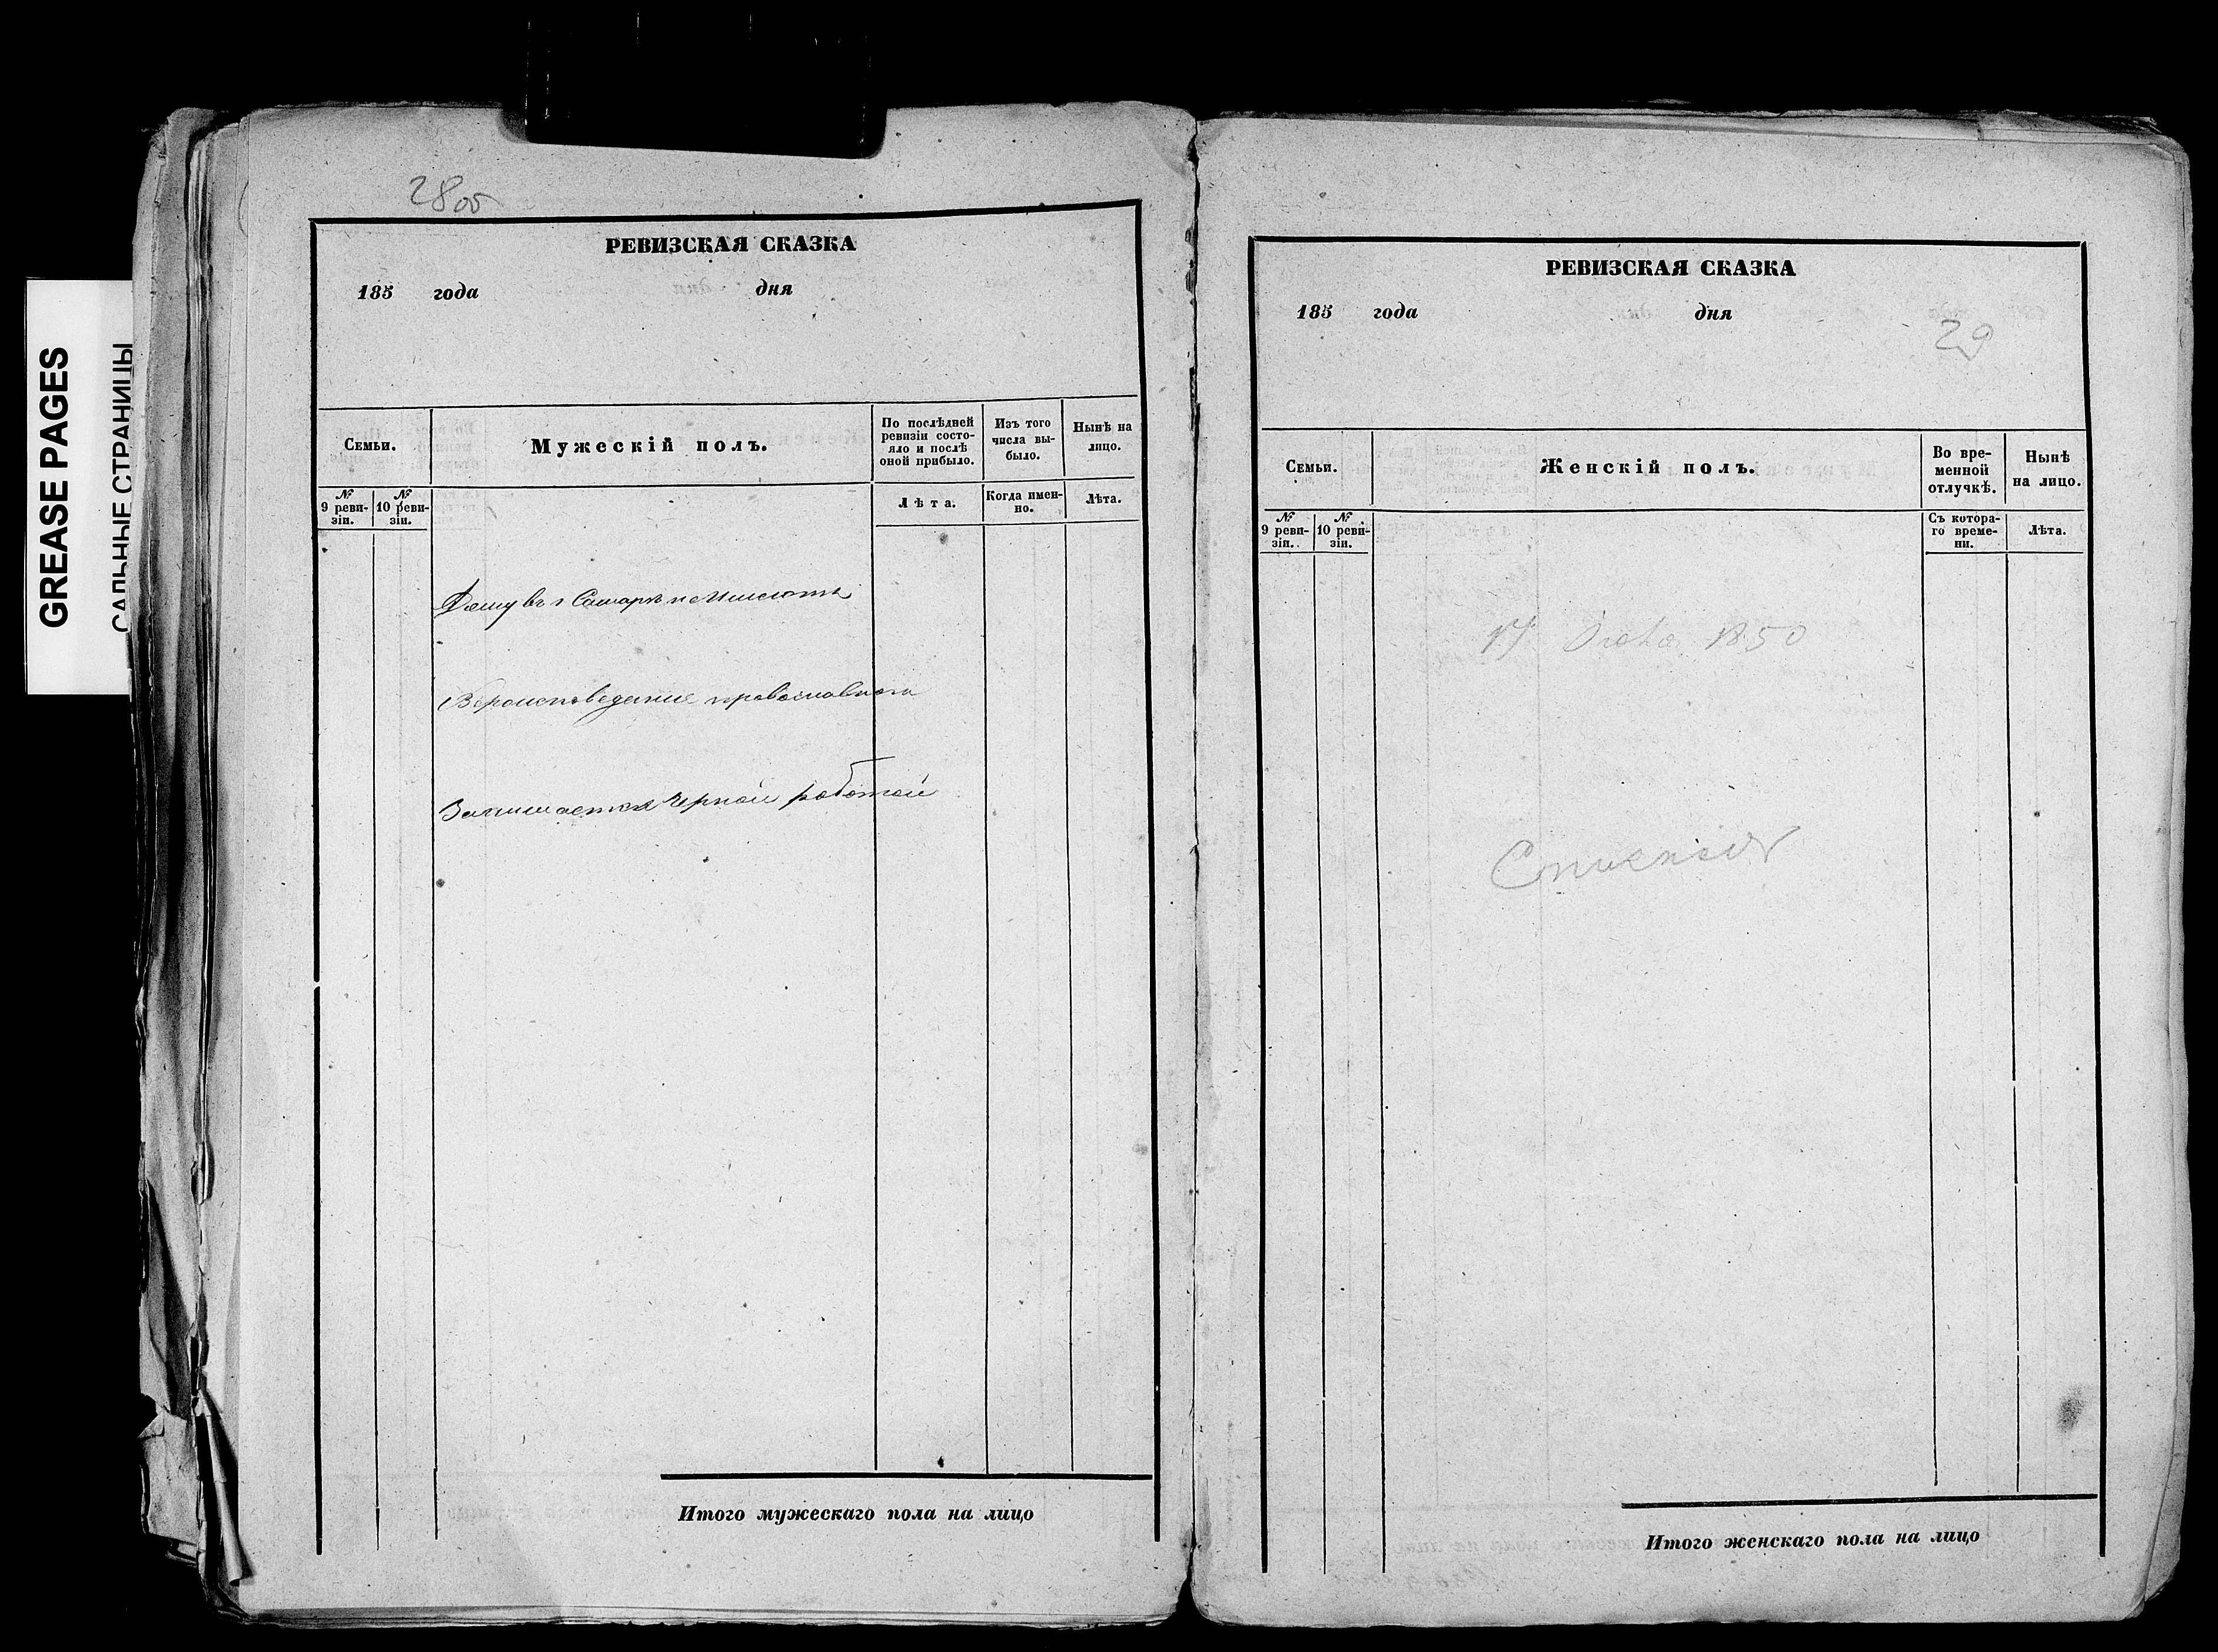 GREASE PAGES
САЛЬНЫЕ СТРАНИЦЫ
28об
РЕВИЗСКАЯ СКАЗКА
185 года дня
Семьи.
Мужескiй полъ.
По послѣдней ревизiи состо-
яло и послѣ
оной прибыло.
Изъ того
числа вы-
было.
Нынѣ на
лицо.
№
9 реви-
зiи.
№
10 реви-
зiи.
Лѣта.
Когда имен-
но.
Лѣта.
Дому въ г Самарѣ не имѣетъ
Вероисповедание православнаго
Занимается черной работой
Итого мужескаго пола на лицо
РЕВИЗСКАЯ СКАЗКА
185 года дня
29
Семьи.
Женскiй полъ.
Во вре-
менной
отлучкѣ.
Нынѣ
на лицо.
№
9 реви-
зiи.
№
10 реви-
зiи.
Съ котора-
го време-
ни.
Лѣта.
1850
Итого женскаго пола на лицо